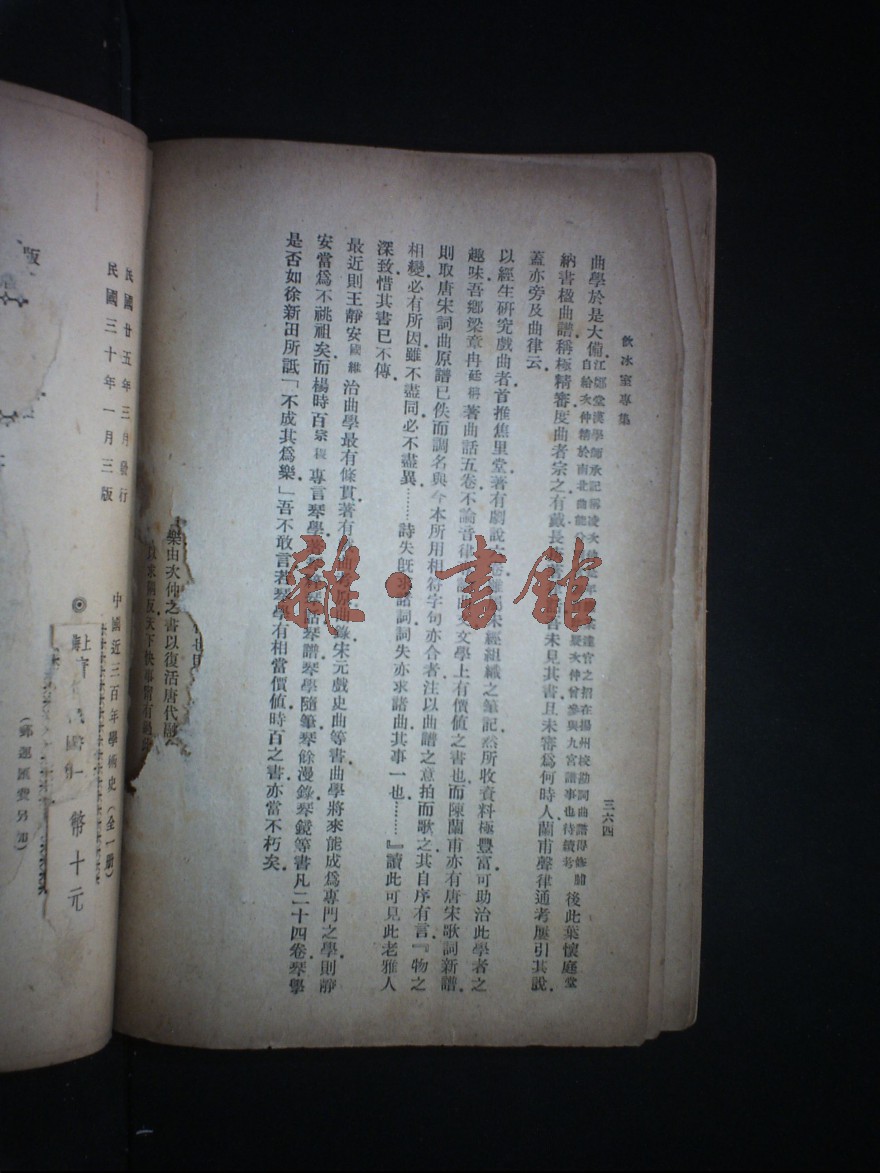 飲冰室專集
三六四
曲學於是大備
江鄭堂漢學師承記稱凌次仲
達官之招在揚州校勘詞曲譜得脩脯
自給次仲精於南北曲能分
疑次仲曾參與九宮譜事也待續考
後此葉懷庭堂
納書楹曲譜稱極精審度曲者宗之有戴長
未見其書且未審為何時人蘭甫聲律通考屢引其說
蓋亦旁及曲律云
以經生研究戲曲者首推焦里堂著有劇說
宋經組織之筆記然所收資料極豐富可助治此學者之
趣味吾鄉梁章冉廷枏著曲話五卷不論音律
文學上有價值之書也而陳蘭甫亦有唐宋歌詞新譜
則取唐宋詞曲原譜已佚而調名與今本所用相符字句亦合者注以曲譜之意拍而歌之其自序有言『物之
相變必有所因雖不盡同必不盡異……詩失旣求諸詞詞失亦求諸曲其事一也……』讀此可見此老雅人
深致惜其書已不傳
最近則王靜安國維治曲學最有條貫著有
曲錄宋元戲史曲等書曲學將來能成爲專門之學則靜
安當爲不祧祖矣而楊時百宗稷專言琴學著
琴話琴譜琴學隨筆琴餘漫錄琴鏡等書凡二十四卷琴學
是否如徐新田所詆「不成其爲樂」吾不敢言若琴學有相當價值時百之書亦當不朽矣
樂由次仲之書以復活唐代
天下快事
雜·書館
版
民國廿五年三月發行
民國三十年一月三版
中國近三百年學術史(全一冊)
上海
國幣十元
(郵運匯費另加)